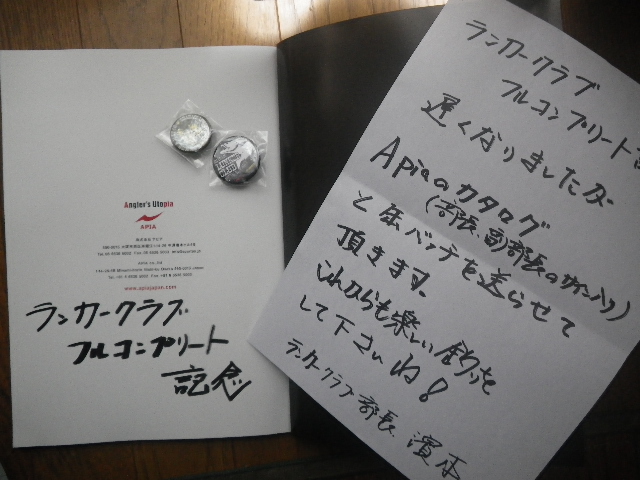 Angler's Utopia
APIA
株式会社 アピア
APIA co.,Ltd
www.apiajapan.com
ランカークラブ
フルコンプリート
記念
ランカークラブ
フルコンプリート
遅くなりましたが
Apiaのカタログ
(部長、副部長のサイン入り)
と缶バッチを送らせて
頂きます。
これからも楽しい釣りを
して下さいね!
ランカークラブ部長、濱本